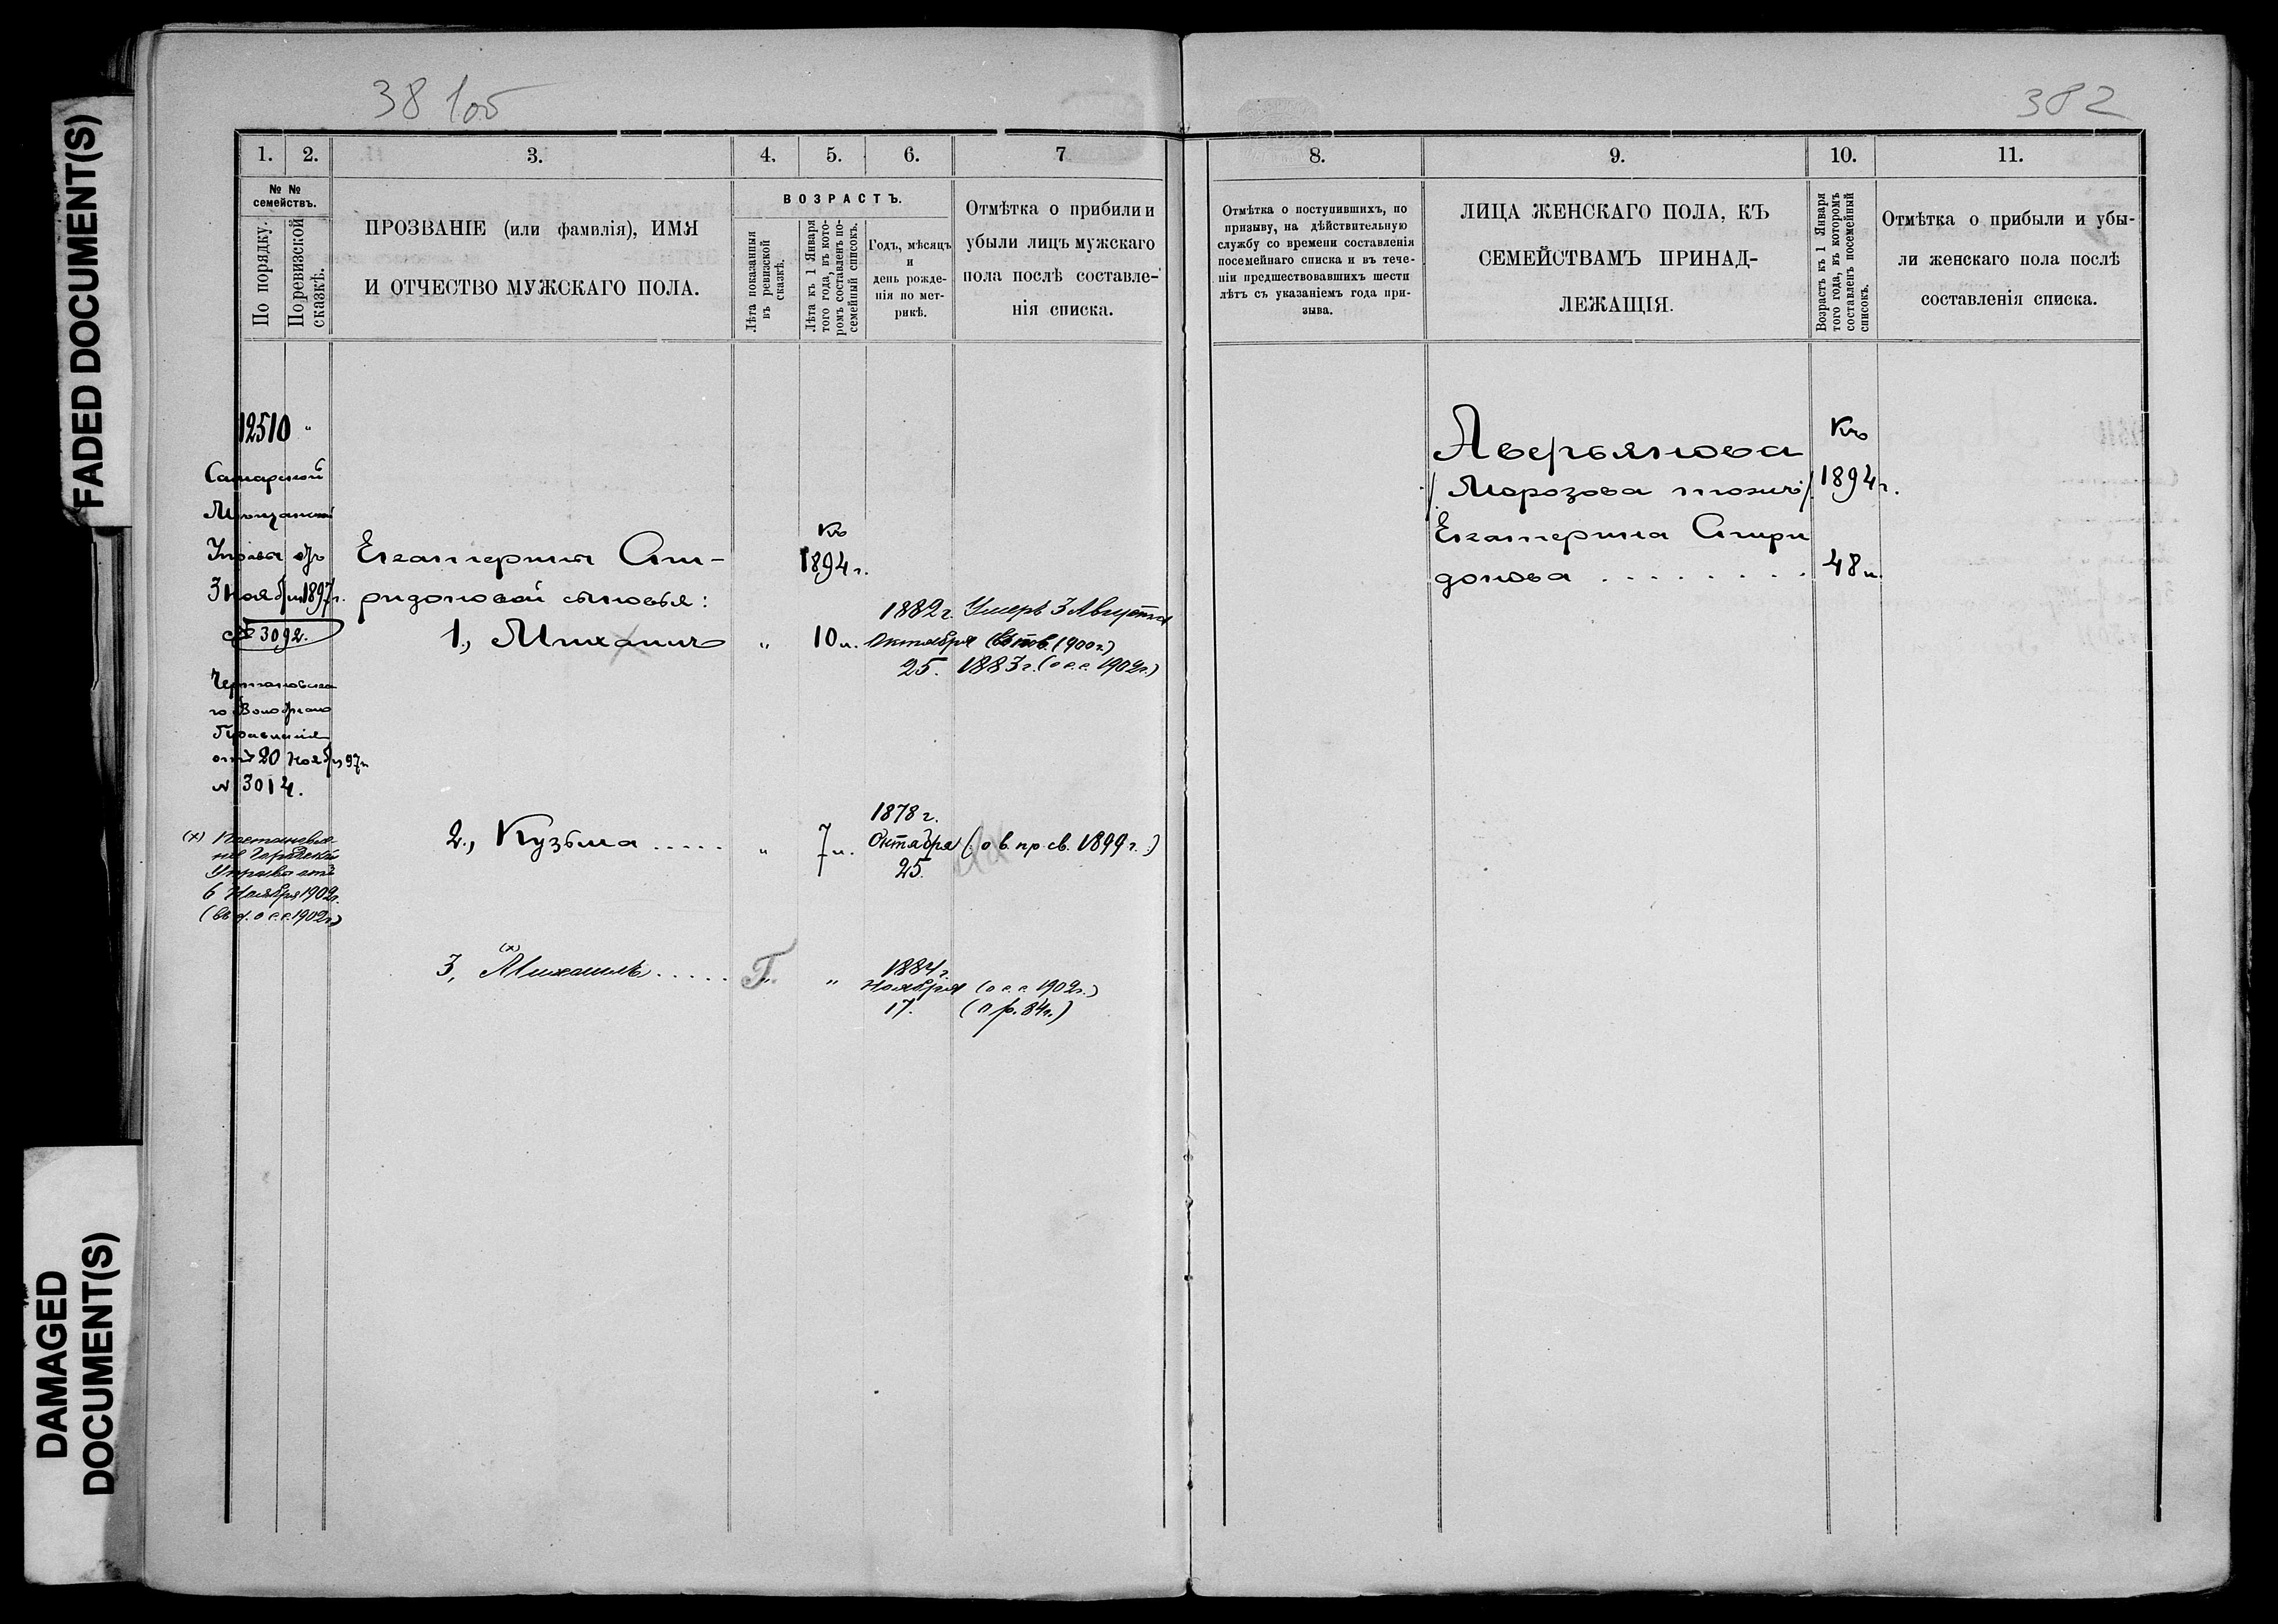 FADED DOCUMENT(S)
DAMAGED
DOCUMENT(S)
381об
1. 2. 3. 4. 5. 6. 7
№ №
семействъ.
По порядку.
По ревизской
сказкѣ.
ПРОЗВАНІЕ (или фамилія), ИМЯ
И ОТЧЕСТВО МУЖСКАГО ПОЛА.
ВОЗРАСТЪ.
Лѣта показанныя
въ ревизской
сказкѣ.
Лѣта къ 1 Января
того года, въ кото-
ромъ составленъ по-
семейный списокъ.
Годъ, мѣсяцъ
и
день рожде-
нія по мет-
рикѣ.
Отмѣтка о прибыли и
убыли лицъ мужскаго
пола послѣ составле-
нія списка.
12510 "
Самарской
Мѣщанской
Управы отъ
3 Ноября 1897г.
№ 3092.
от 20 Ноября 97г
№ 3014.
(х)
Управы отъ
6 Ноября 1902г.
Екатерины Спи-
ридоновой сыновья:
Къ
1894 г.
1., Михаилъ " 10 л.
1882 г.
Октября
25.
Умеръ 3 Августа
1900 г.)
1883 г. (о с. с. 1902г.)
2., Кузьма ..... " 7 л.
1878 г.
Октября
25.
(о в. пр. св. 1899 г.)
(х)
3, Михаилъ ..... "
1884 г.
Ноября
17.
(о с. с. 1902г.)
(о р. 84г.)
382
8. 9. 10. 11.
Отмѣтка о поступившихъ, по
призыву, на дѣйствительную
службу со времени составленія
посемейнаго списка и въ тече-
ніи предшествовавшихъ шести
лѣтъ съ указаніемъ года при-
зыва.
ЛИЦА ЖЕНСКАГО ПОЛА, КЪ
СЕМЕЙСТВАМЪ ПРИНАД-
ЛЕЖАЩІЯ.
Возрастъ къ 1 Января
того года, въ которомъ
составленъ посемейный
списокъ.
Отмѣтка о прибыли и убы-
ли женскаго пола послѣ
составленія списка.
Аверьянова
/Морозова тожъ/
Екатерина Спири
донова ........
Къ
1894 г.
48 л.